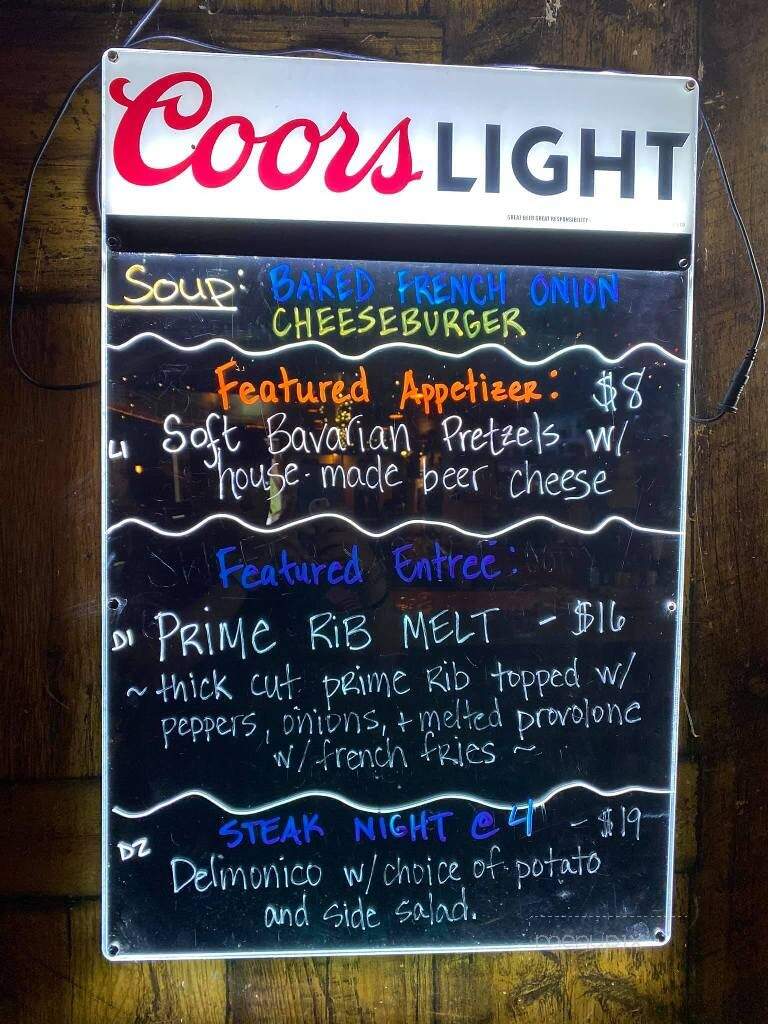 Coors LIGHT
GREAT BEER GREAT RESPONSIBILITY
Soup: BAKED FRENCH ONION
CHEESEBURGER
Featured Appetizer: $8
L1 Soft Bavarian Pretzels w/
house-made beer cheese
Featured Entree:
D1 PRIME RIB MELT - $16
~ thick cut prime rib topped w/
peppers, onions, + melted provolone
w/ french fries ~
STEAK NIGHT @ 4 - $19
D2 Delimonico w/ choice of potato
and side salad.
menupix